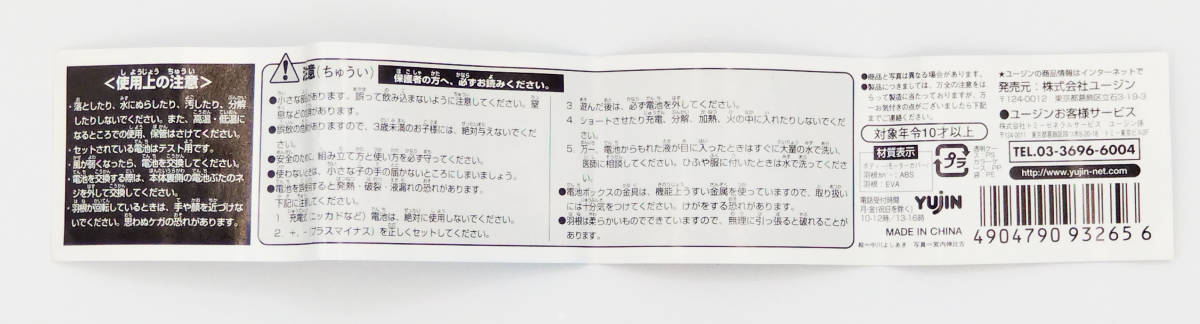 ＜使用上の注意＞
・落としたり、水にぬらしたり、汚したり、分解
したりしないでください。また、高温・低温に
なるところでの使用、保管はさけてください。
・セットされている電池はテスト用です。
・風が弱くなったら、電池を交換してください。
・電池を交換する際は、本体裏側の電池ぶたのネ
ジを外して交換してください。
・羽根が回転しているときは、手や顔を近づけな
いでください。思わぬケガの恐れがあります。
注意(ちゅうい)
保護者の方へ、必ずお読みください。
●小さな部品があります。誤って飲み込まないように注意してください。窒
息などの危険があります。
●誤飲の危険がありますので、3歳未満のお子様には、絶対与えないでくだ
さい。
●安全のために、組み立て方と使い方を必ず守ってください。
●使わないときは、小さな子の手の届かないところにしまいましょう。
●電池を誤使用すると発熱・破裂・液漏れの恐れがあります。
下記に注意してください。
1 充電式(ニッカドなど)電池は、絶対に使用しないでください。
2. +、-(プラスマイナス)を正しくセットしてください。
3 遊んだ後は、必ず電池を外してください。
4 ショートさせたり充電、分解、加熱、火の中に入れたりしないでくださ
い。
5 万一、電池からもれた液が目に入ったときはすぐに大量の水で洗い、
医師に相談してください。ひふや服に付いたときは水で洗ってくださ
い。
●電池ボックスの金具は、機能上うすい金属を使っていますので、取り扱い
には十分気をつけてください。けがをする恐れがあります。
●羽根は柔らかいものでできていますので、無理に引っ張ると破れることが
あります。
●商品と写真は異なる場合があります。
●製品につきましては、万全の注意をは
らって製造に当たっておりますが、万
一お気付きの点がございましたら下記
までご連絡ください。
対象年令10才以上
材質表示
ボディ・モーターカバー
羽根か : ABS
羽根 : EVA
プラ
電話受付時間
月-金(祝日を除く)
10-12時/13-16時
YUJIN
MADE IN CHINA
★ユージンの商品情報はインターネットで
発売元：株式会社ユージン
〒124-0012 東京都葛飾区立石3-19-3
●ユージンお客様サービス
TEL.03-3696-6004
http://www.yujin-net.com/
4904790 932656